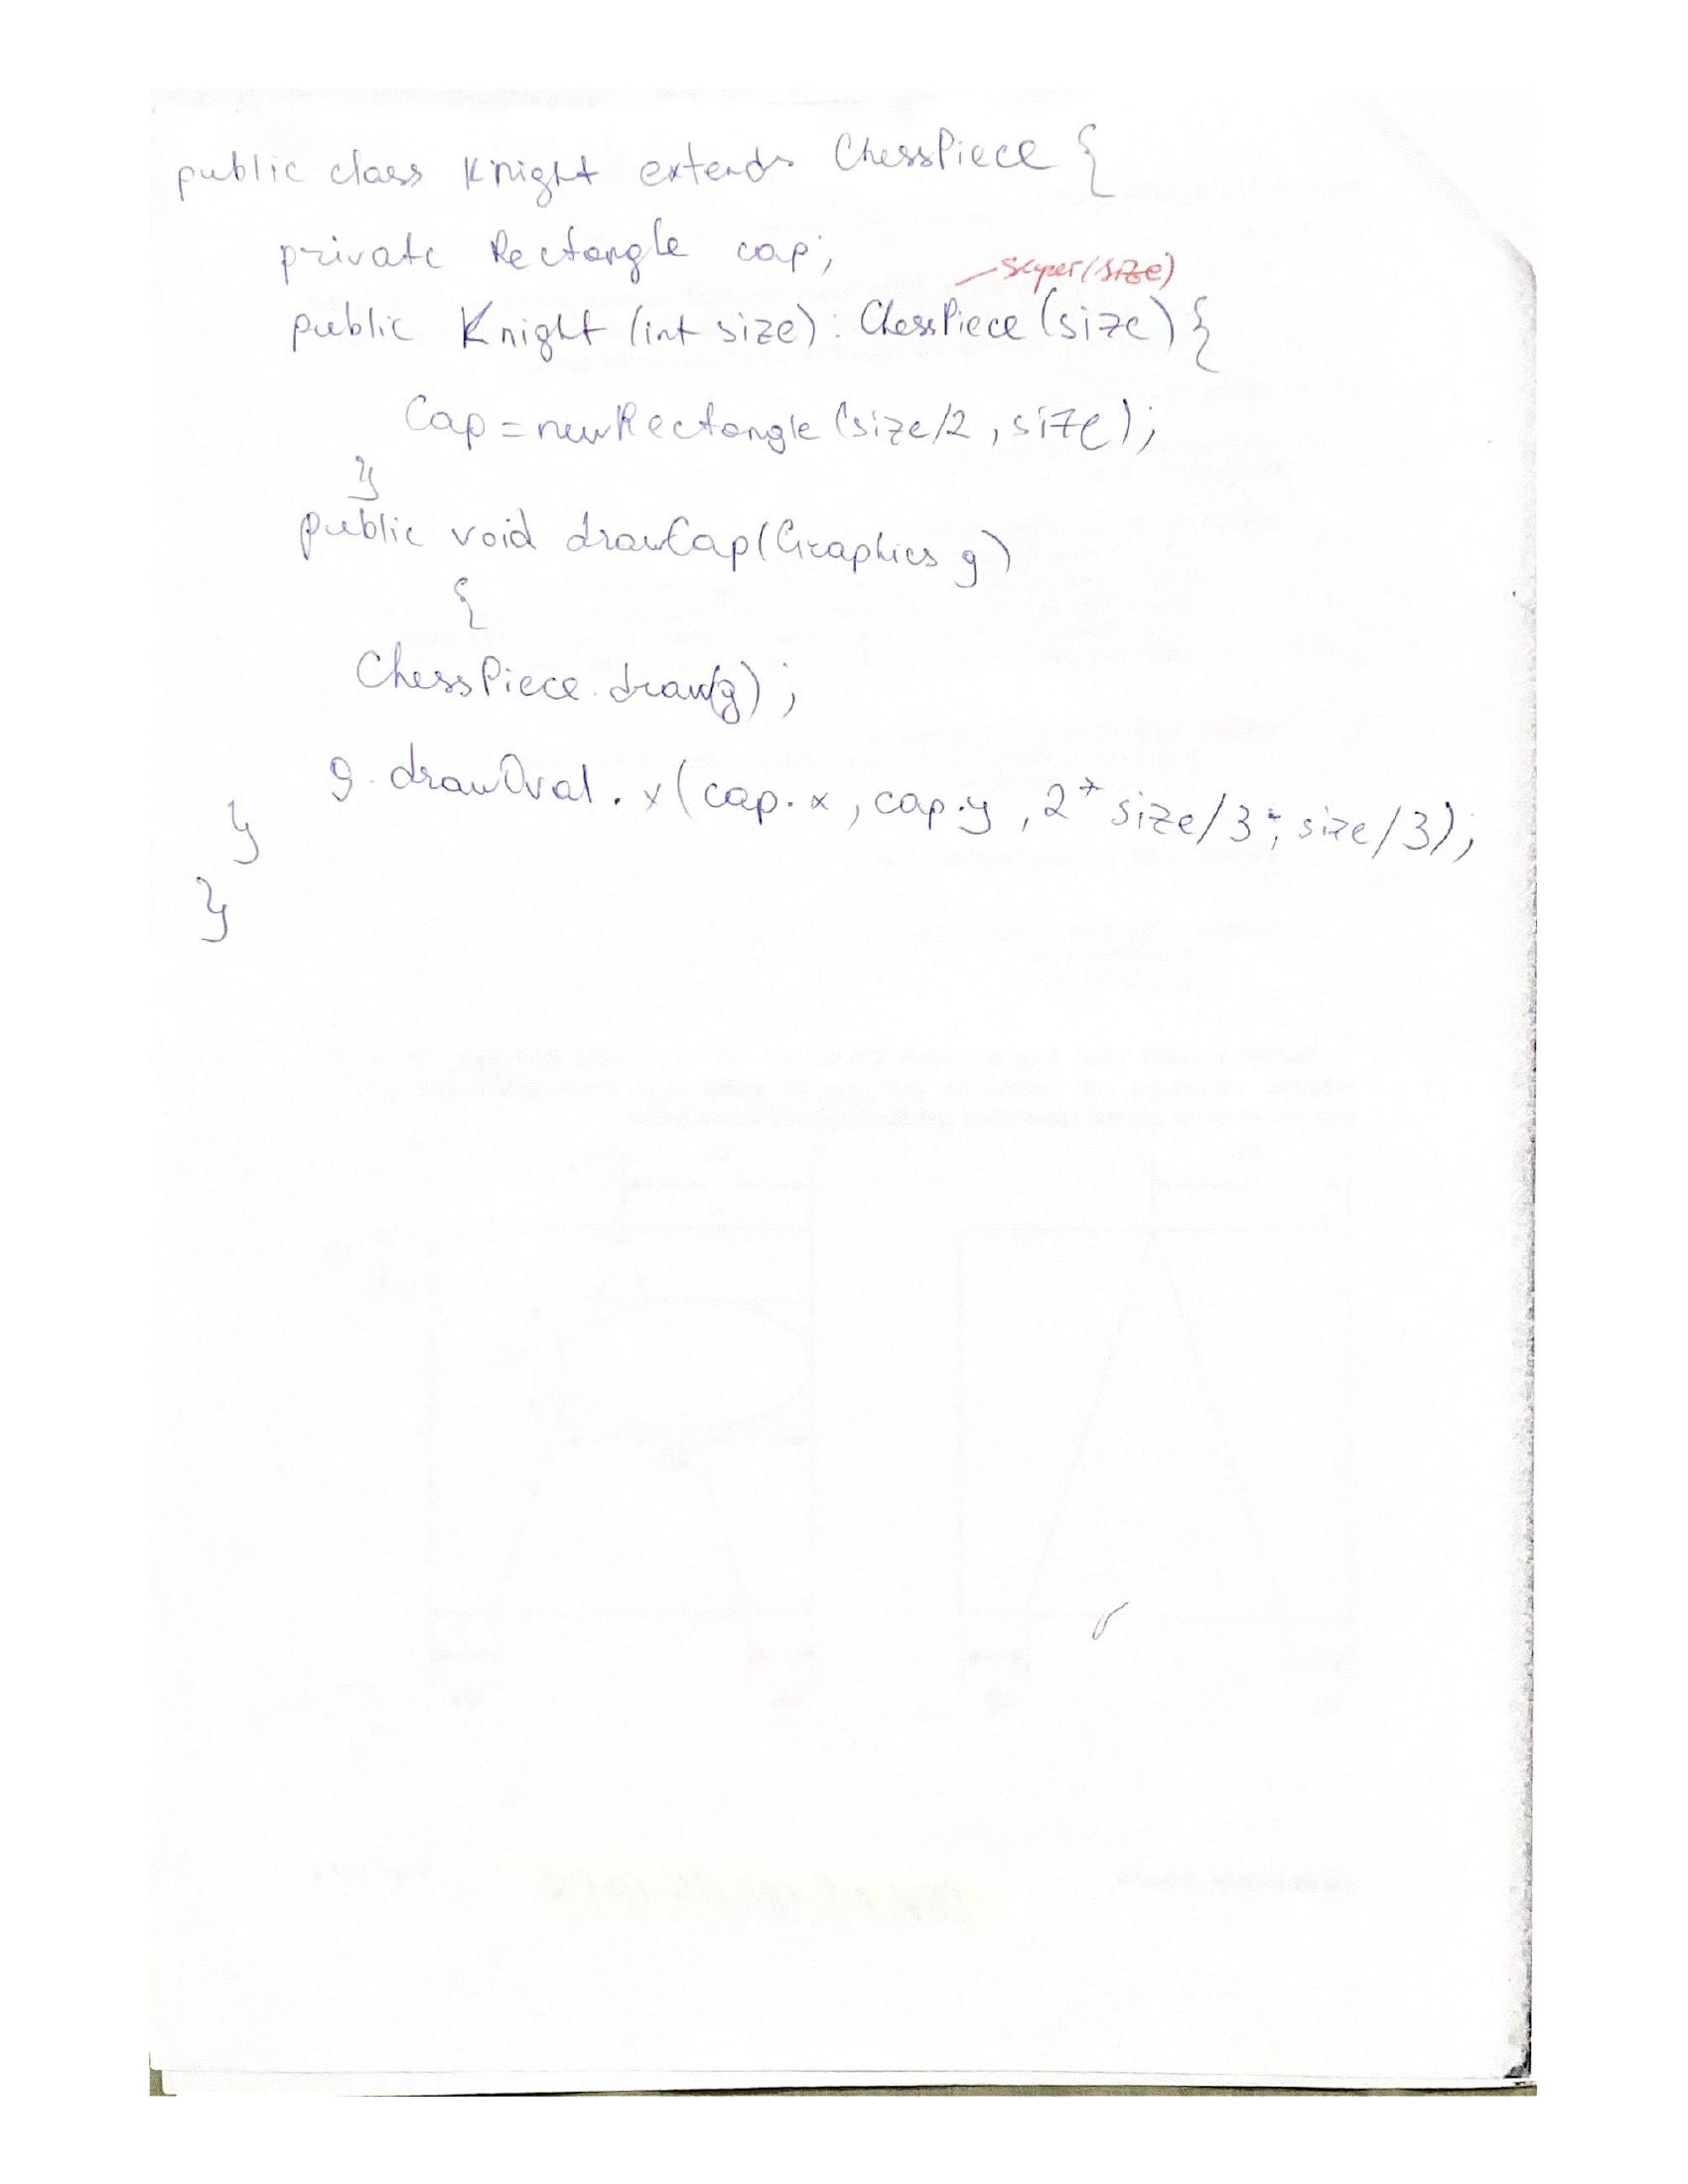 public class Knight extends ChessPiece {
private Rectangle cap;
super(size)
public Knight (int size) : ChessPiece (size) {
Cap = new Rectangle (size/2 , size);
}
public void drawCap(Graphics g)
{
ChessPiece.draw(g) ;
g.drawOval.x(cap.x, cap.y , 2*size/3 ; size/3);
}
}